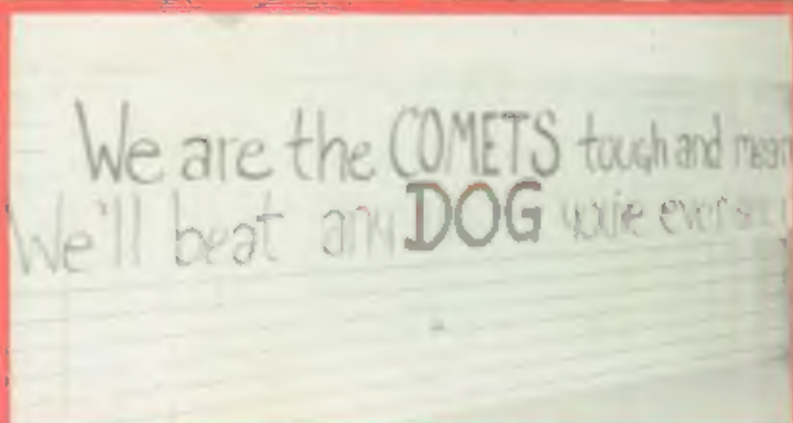 We are the COMETS tough and mean
We'll beat any DOG you've ever